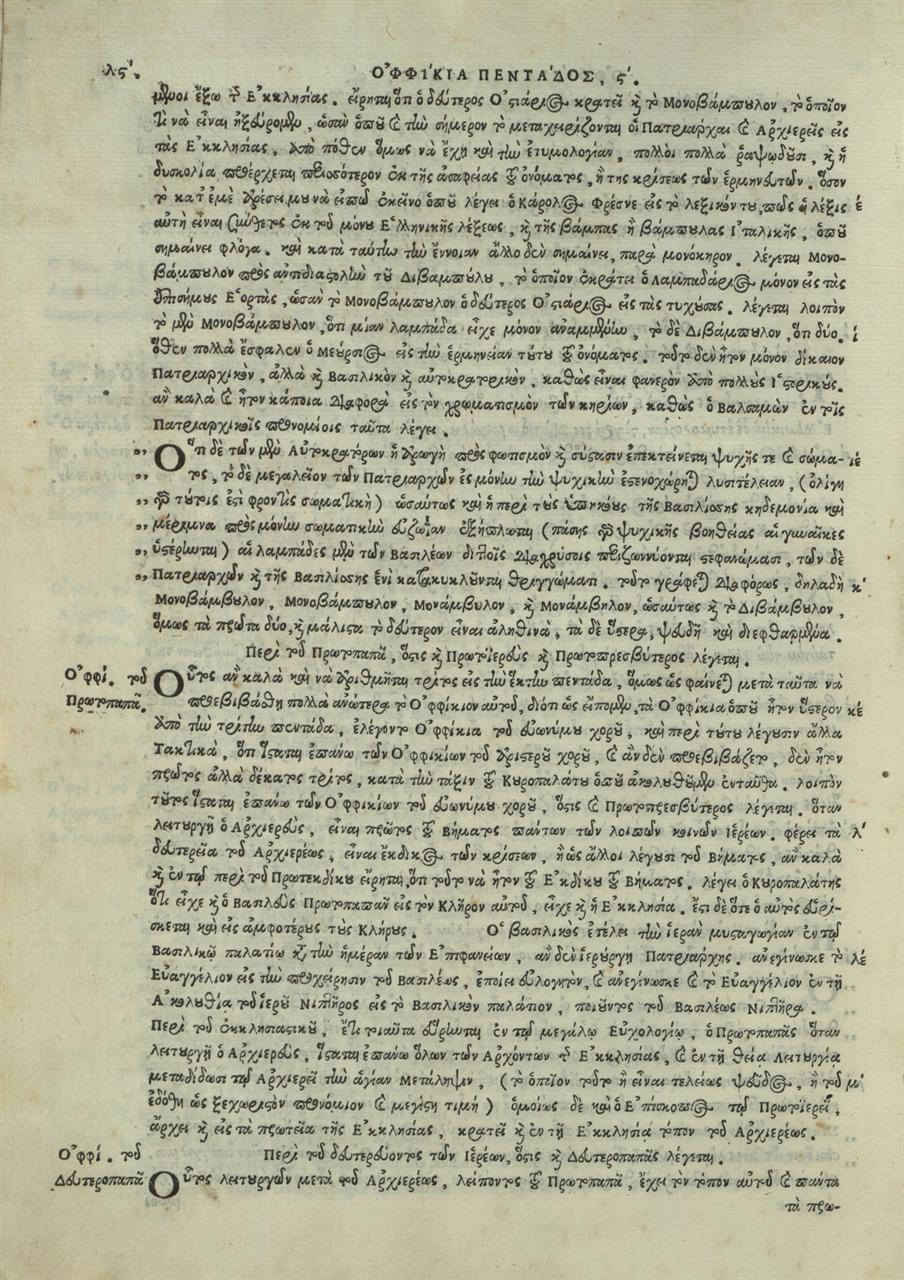 λϛ΄. ΟΦΦΙΚΙΑ ΠΕΝΤΑΔΟΣ, ϛ΄.
μένοι ἔξω τῆς Ἐκκλησίας. εἴρηται ὅτι ὁ δεύτερος Ὀστιάριος κρατεῖ καὶ τὸ Μονοβάμπουλον, τὸ ὁποῖον
τί νὰ εἶναι ἠξεύρομεν, ὡσὰν ὁποῦ καὶ τὴν σήμερον τὸ μεταχειρίζονται οἱ Πατριάρχαι καὶ Ἀρχιερεῖς εἰς
τὰς Ἐκκλησίας, ἀπὸ πόθεν ὅμως νὰ ἔχῃ καὶ τὴν ἐτυμολογίαν, πολλοὶ πολλὰ ῥαψῳδοῦσι, καὶ ἡ
δυσκολία προέρχεται περισσότερον ἐκ τῆς ἀσαφείας τοῦ ὀνόματος, ἢ τῆς κρίσεως τῶν ἑρμηνευτῶν. ὅσον
τὸ κατ' ἐμὲ ἀρέσει μου νὰ εἰπῶ ἐκεῖνο ὁποῦ λέγει ὁ Κάρολος Φρέσνε εἰς τὸ λεξικόν του, πῶς ἡ λέξις ἑ
αὐτὴ εἶναι σύνθετος ἐκ τοῦ μόνου Ἑλληνικῆς λέξεως, καὶ τῆς βάμπας ἢ βάμπουλας Ἰταλικῆς, ὁποῦ
σημαίνει φλόγα. καὶ κατὰ ταύτην τὴν ἔννοιαν ἄλλο δὲν σημαίνει, παρὰ μονόκηρον. λέγεται Μονο-
βάμπουλον πρὸς ἀντιδιαστολὴν τοῦ Διβαμπούλου, τὸ ὁποῖον ἐκράτει ὁ Λαμπαδάριος μόνον εἰς τὰς
ἐπισήμους Ἑορτὰς, ὡσὰν τὸ Μονοβάμπουλον ὁ δεύτερος Ὀστιάριος εἰς τὰς τυχούσας. λέγεται λοιπὸν
τὸ μὲν Μονοβάμπουλον, ὅτι μίαν λαμπάδα εἶχε μόνον ἀναμμένην, τὸ δὲ Διβάμπουλον, ὅτι δύο. ί
ὅθεν πολλὰ ἔσφαλεν ὁ Μεύρσιος εἰς τὴν ἑρμηνείαν τούτου τοῦ ὀνόματος. τοῦτο δὲν ἦτον μόνον δίκαιον
Πατριαρχικὸν, ἀλλὰ καὶ Βασιλικὸν καὶ αὐτοκρατορικὸν, καθὼς εἶναι φανερὸν ἀπὸ πολλοὺς Ἱστορικούς.
ἂν καλὰ καὶ ἦτον κάποια διαφορὰ εἰς τὸν χρωματισμὸν τῶν κηρίων, καθὼς ὁ Βαλσαμὼν ἐν τοῖς
Πατριαρχικοῖς προνομίοις ταῦτα λέγει.
„ Ὅτι δὲ τῶν μὲν Αὐτοκρατόρων ἡ ἀρωγὴ πρὸς φωτισμὸν καὶ σύστασιν ἐπεκτείνεται ψυχῆς τε καὶ σώμα- ιέ
„ τος, τὸ δὲ μεγαλεῖον τῶν Πατριαρχῶν ἐς μόνην τὴν ψυχικὴν ἐστενοχώρηται λυσιτέλειαν, (ὀλίγη
„ γὰρ τούτοις ἐστὶ φροντὶς σωματικὴ) ὡσαύτως καὶ ἡ περὶ τοὺς ὑπηκόους τῆς Βασιλίσσης κηδεμονία καὶ
„ μέριμνα πρὸς μόνην σωματικὴν εὐζωΐαν ἐξήπλωται (πάσης γὰρ ψυχικῆς βοηθείας αἱ γυναῖκες
„ ὑστέρηνται) αἱ λαμπάδες μὲν τῶν Βασιλέων διπλοῖς διαχρύσοις περιζωννύονται στεφανώμασι, τῶν δὲ
„ Πατριαρχῶν καὶ τῆς Βασιλίσσης ἑνὶ κατακυκλοῦνται θριγγώματι. τοῦτο γράφεται διαφόρως, δηλαδὴ κ΄
Μονοβάμβουλον, Μονοβάμπουλον, Μονάμβυλον, καὶ Μονάμβηλον, ὡσαύτως καὶ τὸ Διβάμβουλον,
ὅμως τὰ πρῶτα δύο, καὶ μάλιστα τὸ δεύτερον εἶναι ἀληθινὰ, τὰ δὲ ὕστερα, ψευδῆ καὶ διεφθαρμένα.
Περὶ τοῦ Πρωτοπαπᾶ, ὅστις καὶ Πρωτοϊερεὺς καὶ Πρωτοπρεσβύτερος λέγεται.
Ὀφφί. τοῦ Πρωτοπαπᾶ.
Οὗτος ἂν καλὰ καὶ νὰ ἀριθμῆται τρίτος εἰς τὴν ἕκτην πεντάδα, ὅμως ὡς φαίνεται μετὰ ταῦτα νὰ
προεβιβάσθη πολλὰ ἀνώτερα τὸ Ὀφφίκιον αὐτοῦ, διότι ὡς εἴπομεν, τὰ Ὀφφίκια ὁποῦ ἦτον ὕστερον κέ
ἀπὸ τὴν τρίτην πεντάδα, ἐλέγοντο Ὀφφίκια τοῦ εὐωνύμου χοροῦ, καὶ περὶ τούτου λέγουσιν ἄλλα
Τακτικὰ, ὅτι ἵσταται ἐπάνω τῶν Ὀφφικίων τοῦ ἀριστεροῦ χοροῦ, καὶ ἂν δὲν προεβιβάζετο, δὲν ἦτον
πρῶτος ἀλλὰ δέκατος τρίτος, κατὰ τὴν τάξιν τοῦ Κυροπαλάτου ὁποῦ ἀκολουθοῦμεν ἐνταῦθα. λοιπὸν
τοῦτος ἵσταται ἐπάνω τῶν Ὀφφικίων τοῦ εὐωνύμου χοροῦ, ὅστις καὶ Πρωτοπρεσβύτερος λέγεται. ὅταν
λειτουργῇ ὁ Ἀρχιερεὺς, εἶναι πρῶτος τοῦ Βήματος πάντων τῶν λοιπῶν κοινῶν Ἱερέων. φέρει τὰ λ΄
δευτερεῖα τοῦ Ἀρχιερέως, εἶναι ἔκδικος τῶν κρίσεων, ἢ ὡς ἄλλοι λέγουσι τοῦ Βήματος, ἂν καλὰ
καὶ ἐν τῷ περὶ τοῦ Πρωτεκδίκου εἴρηται, ὅτι τοῦτο νὰ ἦτον τοῦ Ἐκδίκου τοῦ Βήματος. λέγει ὁ Κυροπαλάτης
ὅτι εἶχε καὶ ὁ Βασιλεὺς Πρωτοπαπᾶν εἰς τὸν Κλῆρον αὐτοῦ, εἶχε καὶ ἡ Ἐκκλησία. ἔστι δὲ ὅτε ὁ αὐτὸς εὑρί-
σκεται καὶ εἰς ἀμφοτέρους τοὺς Κλήρους. Ὁ βασιλικὸς ἐτέλει τὴν ἱερὰν μυσταγωγίαν ἐν τῷ
Βασιλικῷ παλατίῳ κατὰ τὴν ἡμέραν τῶν Ἐπιφανείων, ἂν δὲν ἱερούργῃ Πατριάρχης. ἀνεγίνωσκε τὸ λέ
Εὐαγγέλιον εἰς τὴν προχείρησιν τοῦ Βασιλέως, ἐποίει εὐλογητὸν, καὶ ἀνεγίνωσκε καὶ τὸ Εὐαγγέλιον ἐν τῇ
Ἀκολουθίᾳ τοῦ ἱεροῦ Νιπτῆρος εἰς τὸ Βασιλικὸν παλάτιον, ποιοῦντος τοῦ Βασιλέως Νιπτῆρα.
Περὶ τοῦ ἐκκλησιαστικοῦ, ἔτι τοιαῦτα εὕρηνται ἐν τῷ μεγάλῳ Εὐχολογίῳ, ὁ Πρωτοπαπᾶς ὅταν
λειτουργῇ ὁ Ἀρχιερεὺς, ἵσταται ἐπάνω ὅλων τῶν Ἀρχόντων τῆς Ἐκκλησίας, καὶ ἐν τῇ θείᾳ Λειτουργίᾳ
μεταδίδωσι τῷ Ἀρχιερεῖ τὴν ἁγίαν Μετάληψιν, (τὸ ὁποῖον τοῦτο ἢ εἶναι τελείως ψεῦδος, ἢ τοῦ μ΄
ἐδόθη ὡς ξεχωριστὸν προνόμιον καὶ μεγίστη τιμὴ) ὁμοίως δὲ καὶ ὁ Ἐπίσκοπος τῷ Πρωτοϊερεῖ,
ἄρχει καὶ εἰς τὰ πρωτεῖα τῆς Ἐκκλησίας, κρατεῖ καὶ ἐν τῇ Ἐκκλησίᾳ τόπον τοῦ Ἀρχιερέως.
Περὶ τοῦ δευτερεύοντος τῶν Ἱερέων, ὅστις καὶ Δευτεροπαπᾶς λέγεται.
Ὀφφί. τοῦ Δευτεροπαπᾶ
Οὗτος λειτουργῶν μετὰ τοῦ Ἀρχιερέως, λείποντος τοῦ Πρωτοπαπᾶ, ἔχει τὸν τόπον αὐτοῦ καὶ πάντα
τὰ πρω-